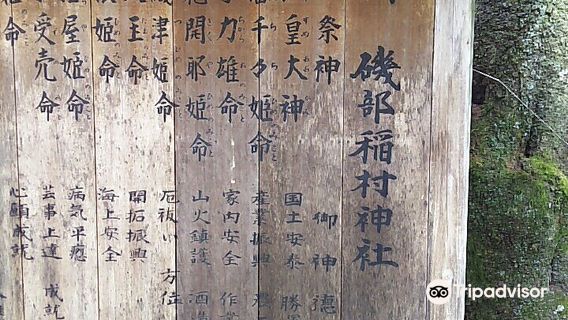 磯部稲村神社
祭神 御神徳
皇大神 国土安泰
千々姫命 産業振興
力雄命 家内安全
開耶姫命 山火鎮護
津姫命 厄祓い 方位
玉命 開拓振興
姫命 海上安全
屋姫命 病気平癒
受売命 芸事上達 成就
命 心願成就
Tripadvisor